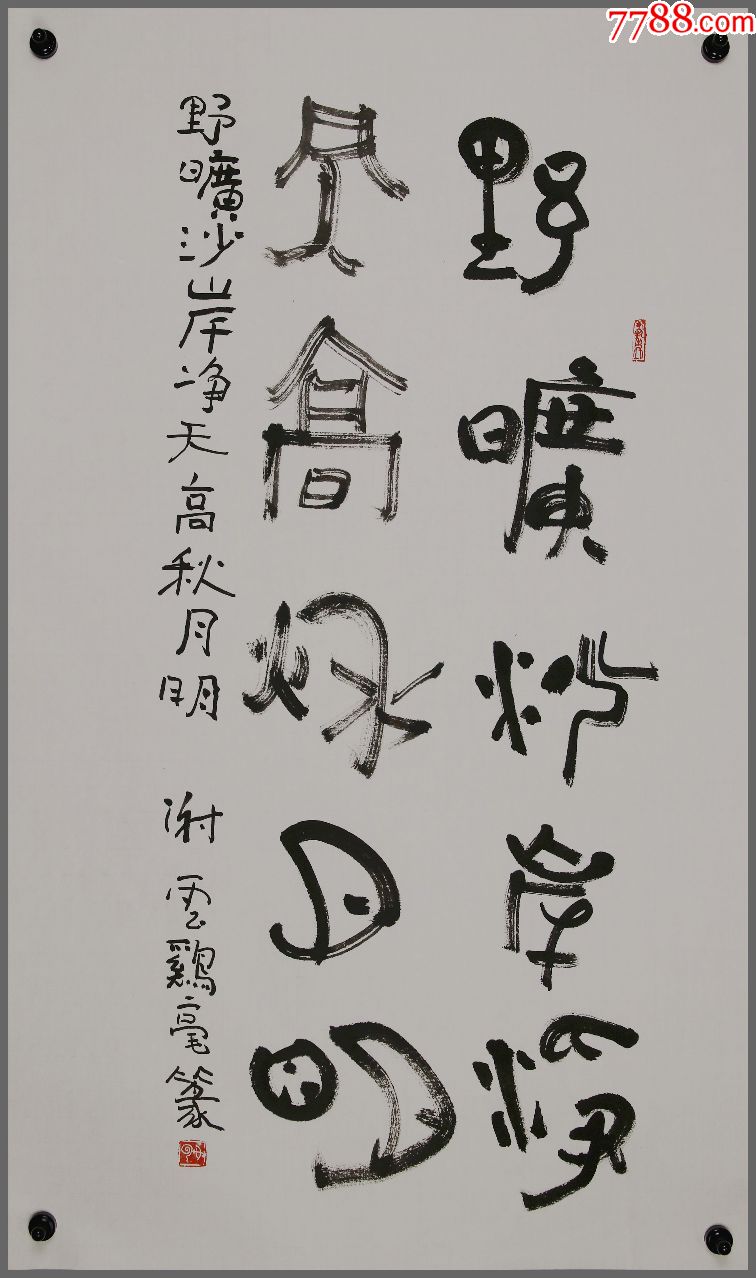 7788.com
野曠沙岸净
天高秋月明
野曠沙岸净天高秋月明 谢云鷄毫篆